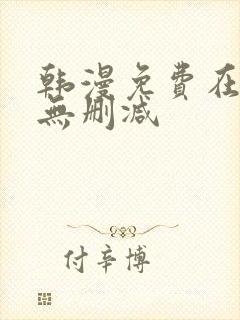 韩漫免費在
無删减
付辛博